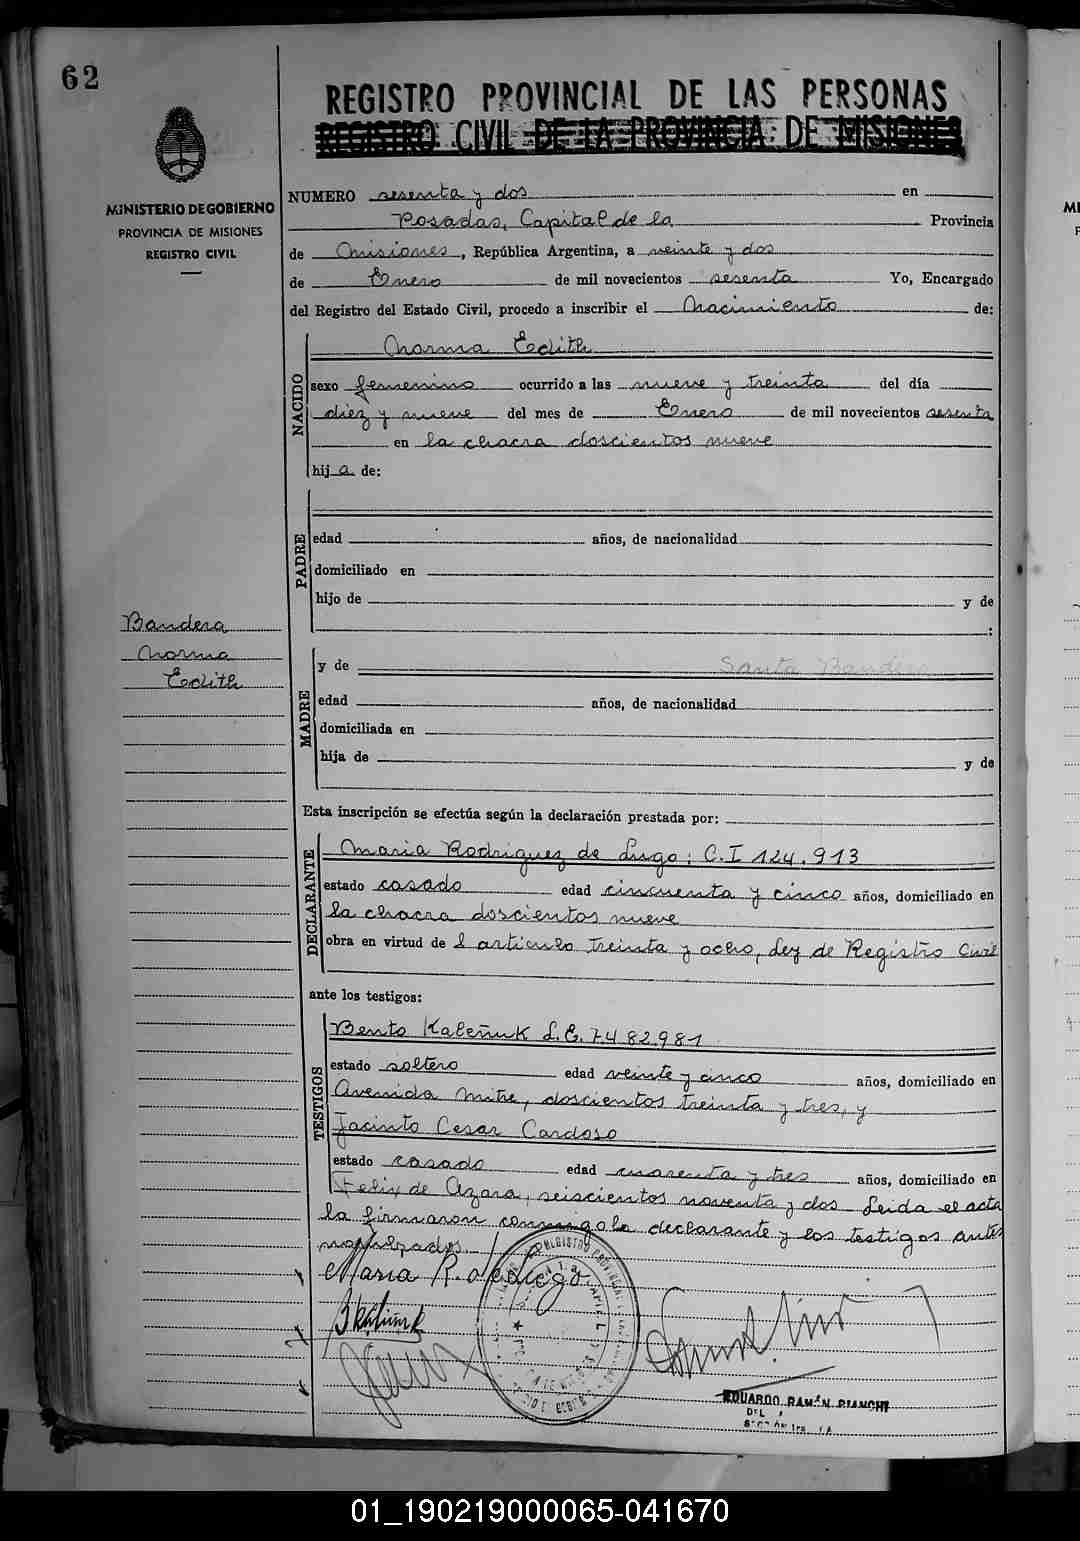 62
REGISTRO PROVINCIAL DE LAS PERSONAS
REGISTRO CIVIL DE LA PROVINCIA DE MISIONES
MINISTERIO DE GOBIERNO
PROVINCIA DE MISIONES
REGISTRO CIVIL
NUMERO sesenta y dos en
Posadas, Capital de la Provincia
de Misiones, República Argentina, a veinte y dos
de Enero de mil novecientos sesenta Yo, Encargado
del Registro del Estado Civil, procedo a inscribir el Nacimiento de:
NACIDO
Norma Edith
sexo femenino ocurrido a las nueve y treinta del día
diez y nueve del mes de Enero de mil novecientos sesenta
en la chacra doscientos nueve
hij a de:
PADRE
edad años, de nacionalidad
domiciliado en
hijo de y de
:
Bandera
Norma
Edith
MADRE
y de Santa Bandera
edad años, de nacionalidad
domiciliada en
hija de y de
Esta inscripción se efectúa según la declaración prestada por:
DECLARANTE
Maria Rodriguez de Lugo; C.I 124.913
estado casado edad cincuenta y cinco años, domiciliado en
la chacra doscientos nueve
obra en virtud de l articulo treinta y ocho, Ley de Registro Civil
ante los testigos:
TESTIGOS
Bento Kaleñuk L.E. 7.482.981
estado soltero edad veinte y cinco años, domiciliado en
Avenida Mitre, doscientos treinta y tres, y
Jacinto Cesar Cardoso
estado casado edad cuarenta y tres años, domiciliado en
Felix de Azara, seiscientos noventa y dos Leida el acta
la firmaron conmigo la declarante y los testigos antes
Maria R.
EDUARDO RAMÓN BIANCHI
01_190219000065-041670